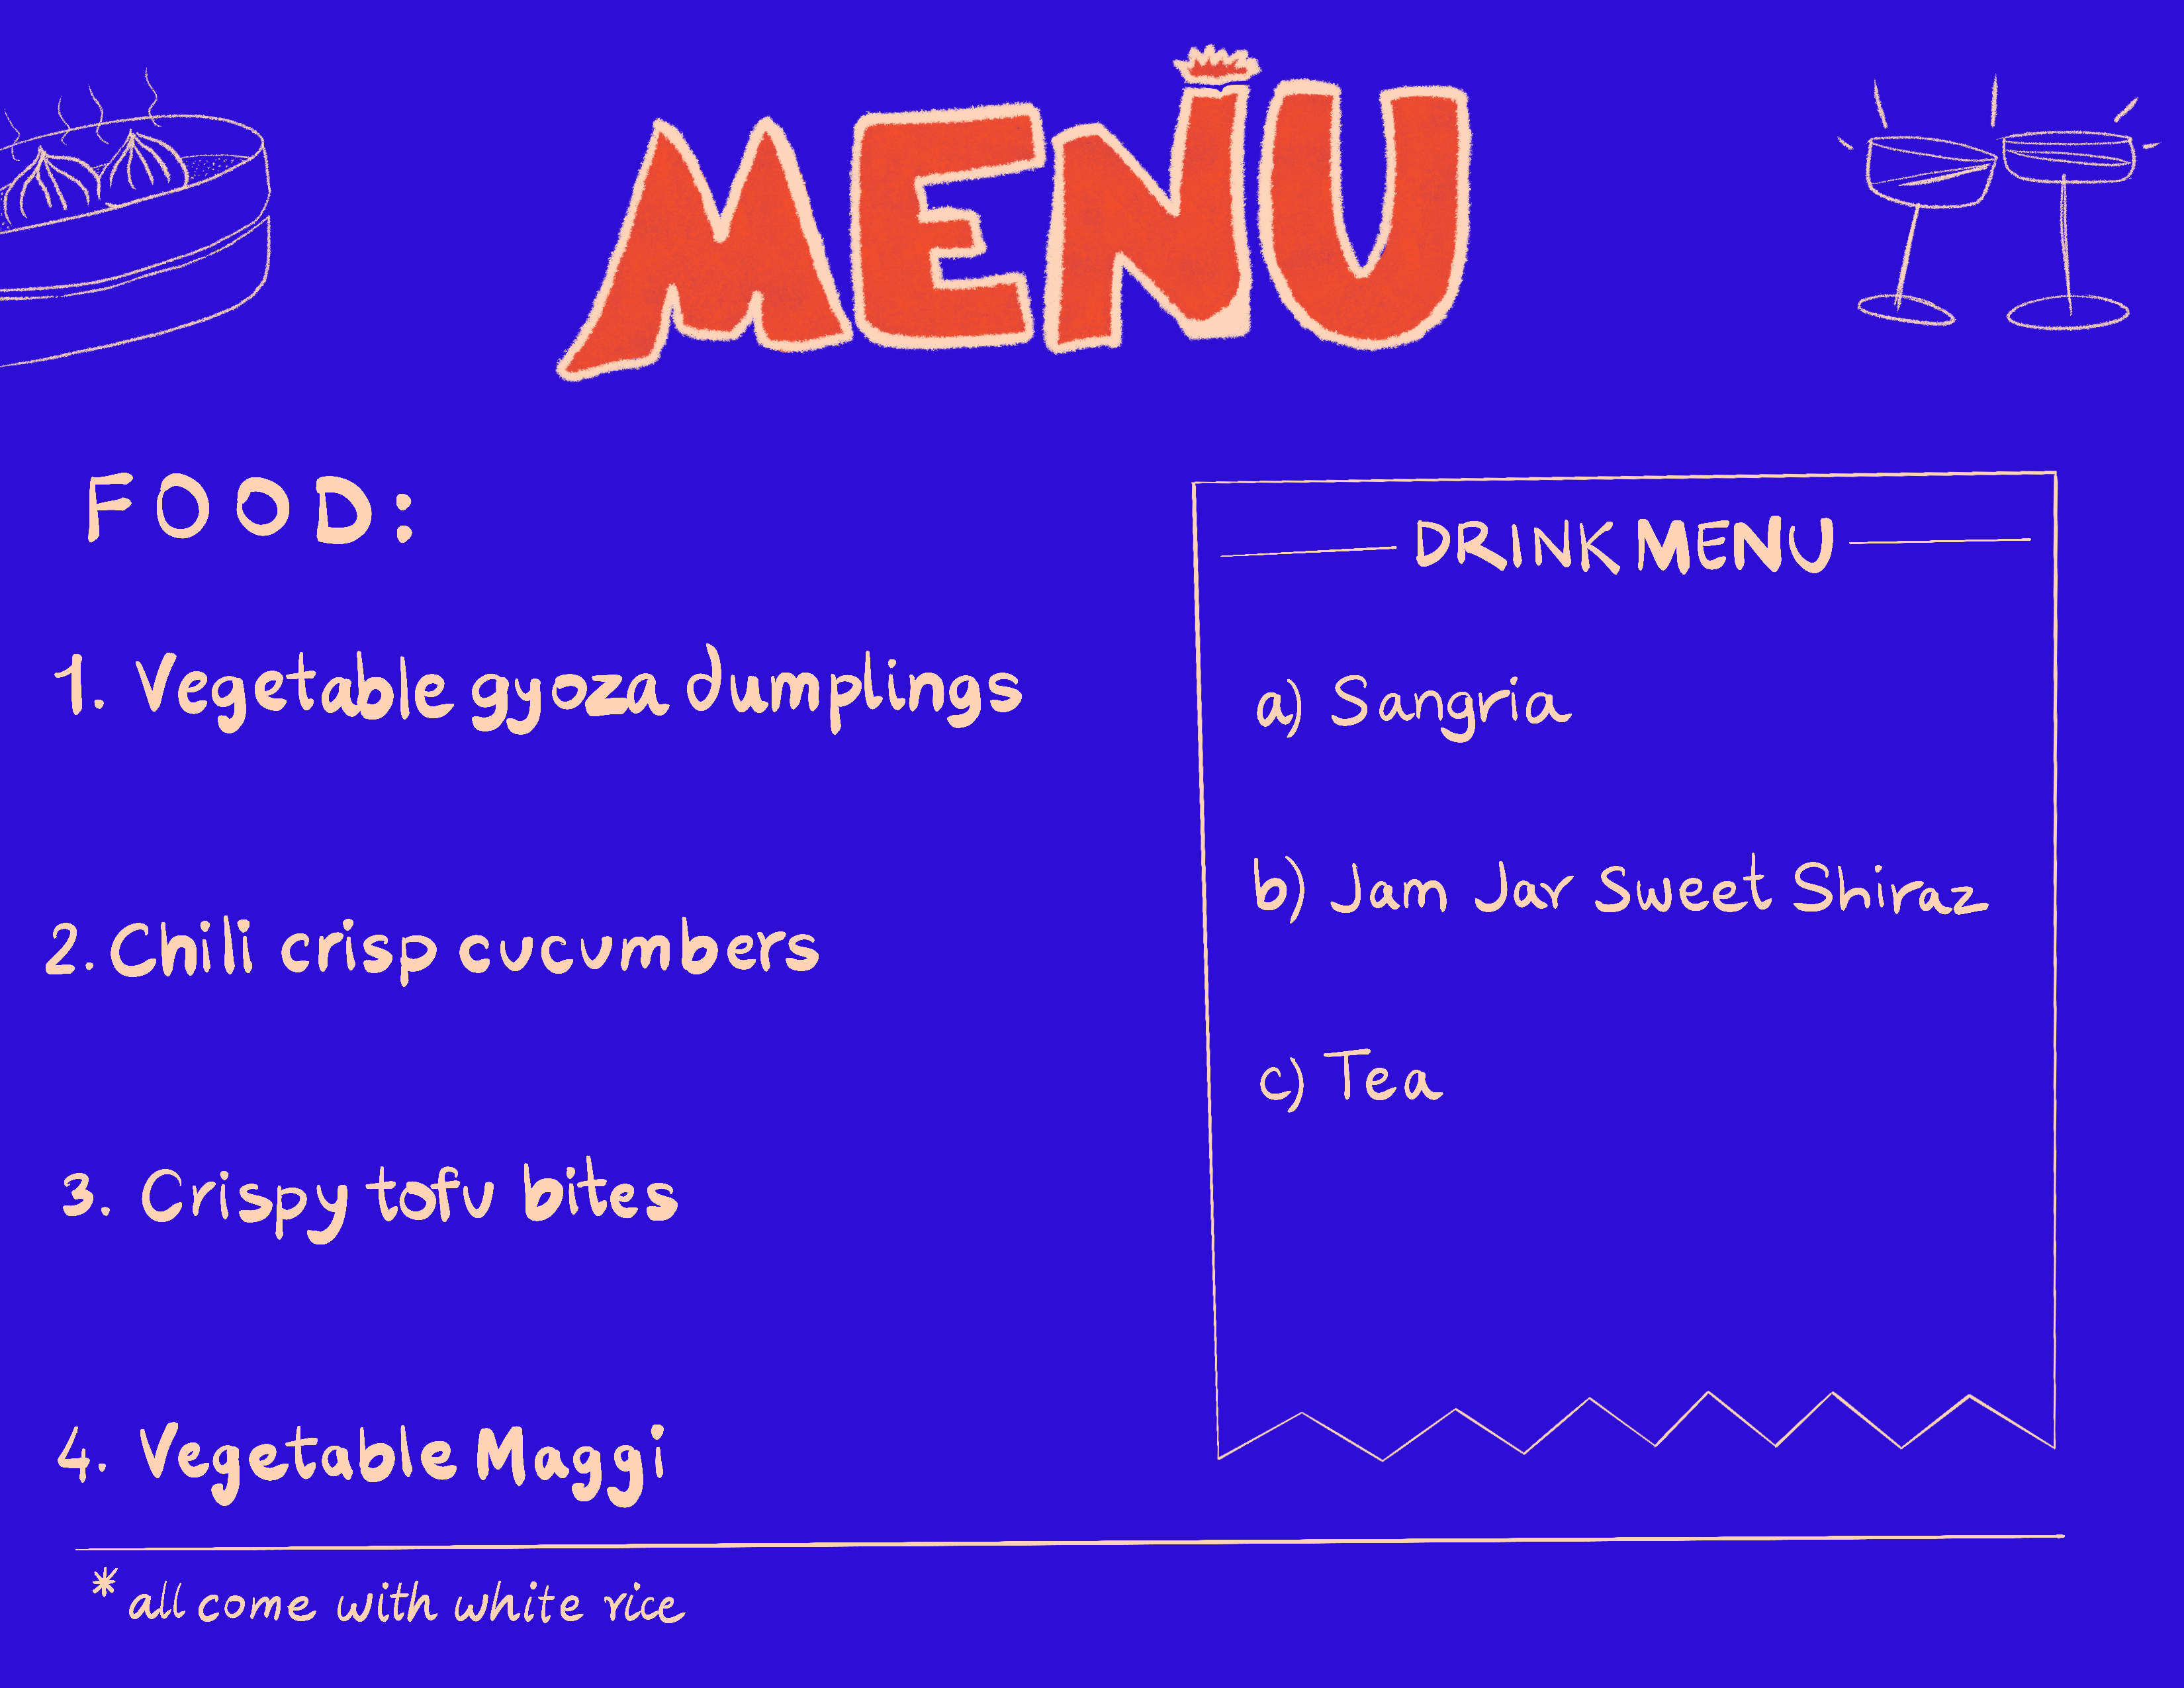 MENU
FOOD:
1. Vegetable gyoza dumplings
2. Chili crisp cucumbers
3. Crispy tofu bites
4. Vegetable Maggi
DRINK MENU
a) Sangria
b) Jam Jar Sweet Shiraz
c) Tea
* all come with white rice